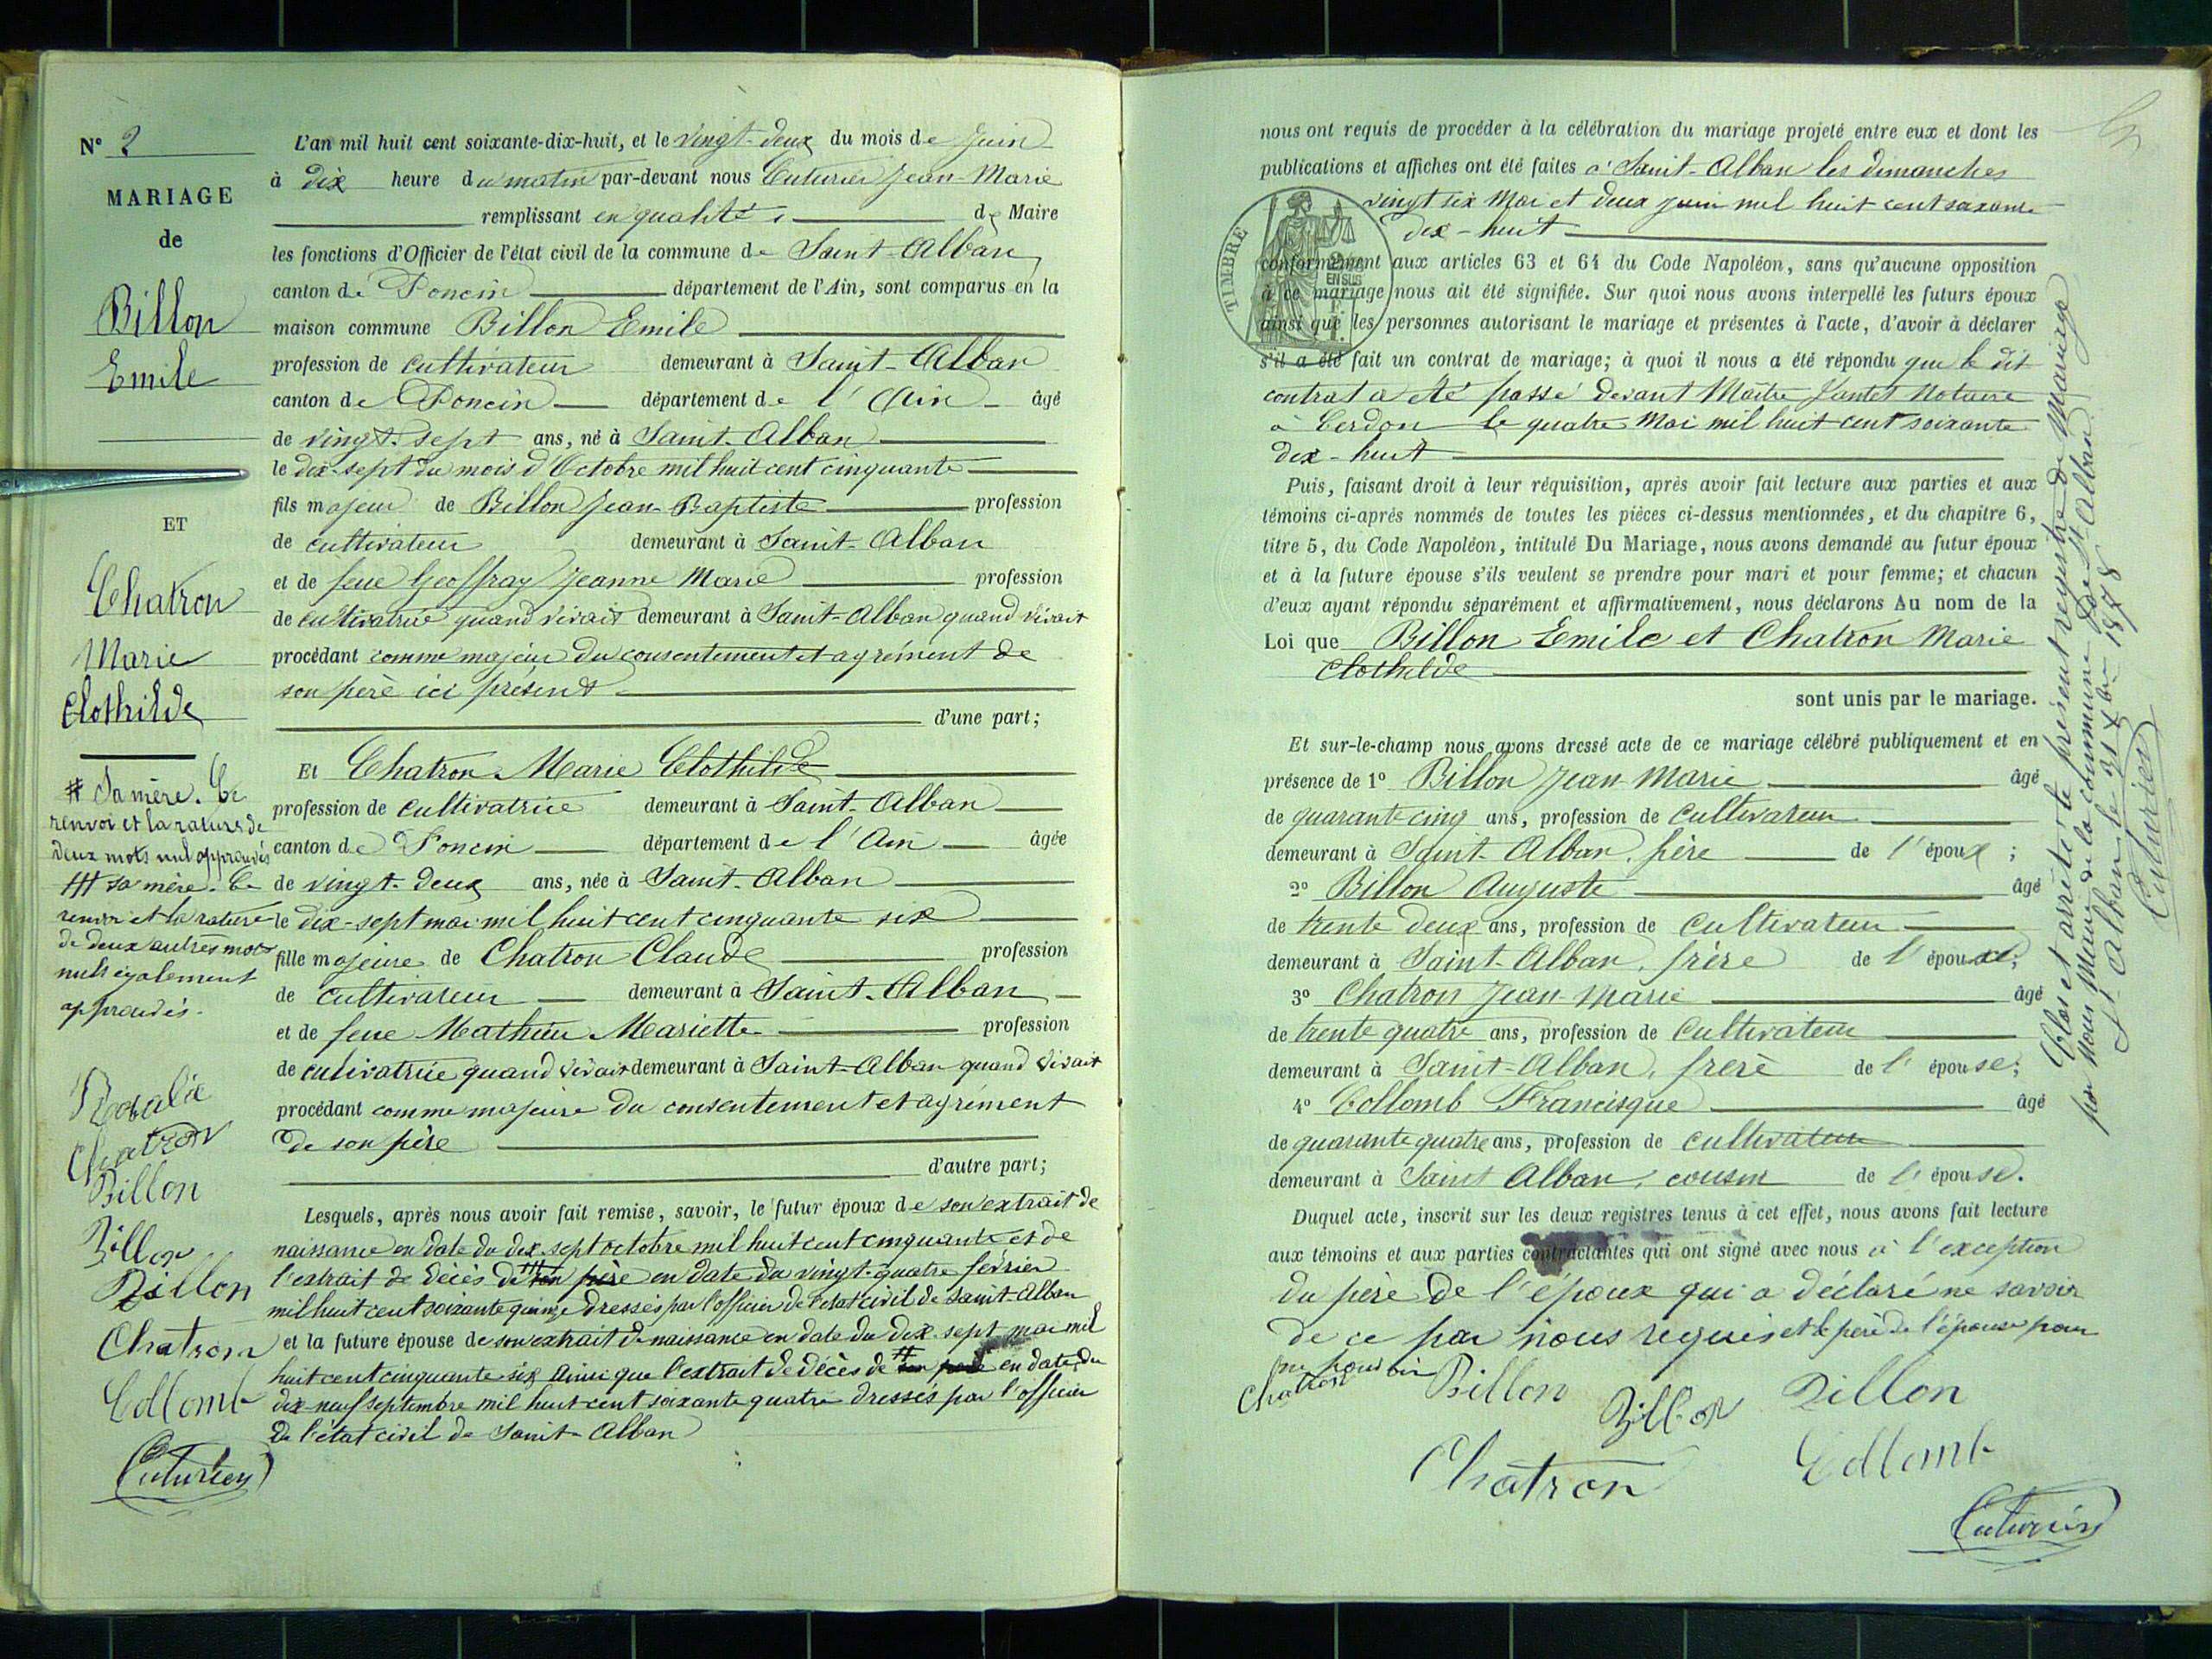 N° 2
MARIAGE
de
Billon
Emile
ET
Chatron
Marie
Clothilde
# Sa mère. Ce
renvoi et la rature de
deux mots nul approuvés
### sa mère. Ce
renvoi et la rature
de deux autres mots
nuls également
approuvés.
Rosalie
Chatron
Billon
Billon
Billon
Chatron
Collomb
Cuturier
L'an mil huit cent soixante-dix-huit, et le vingt-deux du mois de Juin
à dix heure du matin par-devant nous Cuturier Jean-Marie
remplissant en qualité de Maire
les fonctions d'Officier de l'état civil de la commune de Saint-Alban,
canton de Poncin département de l'Ain, sont comparus en la
maison commune Billon Emile
profession de cultivateur demeurant à Saint-Alban
canton de Poncin département de l'Ain âgé
de vingt-sept ans, né à Saint-Alban
le dix-sept du mois d'Octobre mil huit cent cinquante
fils majeur de Billon Jean-Baptiste profession
de cultivateur demeurant à Saint-Alban
et de feue Geoffray Jeanne Marie profession
de cultivatrice quand vivait demeurant à Saint-Alban quand vivait
procédant comme majeur du consentement et agrément de
son père ici présent
d'une part;
Et Chatron Marie Clothilde
profession de cultivatrice demeurant à Saint-Alban
canton de Poncin département de l'Ain âgée
de vingt-deux ans, née à Saint-Alban
le dix-sept mai mil huit cent cinquante six
fille majeure de Chatron Claude profession
de cultivateur demeurant à Saint-Alban
et de feue Mathieu Mariette profession
de cultivatrice quand vivait demeurant à Saint-Alban quand vivait
procédant comme majeure du consentement et agrément
de son père
d'autre part;
Lesquels, après nous avoir fait remise, savoir, le futur époux de son extrait de
naissance en date du dix-sept octobre mil huit cent cinquante et de
l'extrait de décès de ### son père en date du vingt-quatre février
mil huit cent soixante quinze dressés par l'officier de l'état civil de Saint-Alban
et la future épouse de son extrait de naissance en date du dix-sept mai mil
huit cent cinquante six ainsi que l'extrait de décès de # son père en date du
dix-neuf septembre mil huit cent soixante quatre dressés par l'officier
de l'état civil de Saint-Alban
nous ont requis de procéder à la célébration du mariage projeté entre eux et dont les
publications et affiches ont été faites à Saint-Alban les dimanches
vingt six Mai et deux juin mil huit cent soixante
dix-huit
TIMBRE
EN SUS
conformément aux articles 63 et 64 du Code Napoléon, sans qu'aucune opposition
à ce mariage nous ait été signifiée. Sur quoi nous avons interpellé les futurs époux
ainsi que les personnes autorisant le mariage et présentes à l'acte, d'avoir à déclarer
s'il a été fait un contrat de mariage; à quoi il nous a été répondu que le dit
contrat a été passé devant Maître Jantet Notaire
à Cerdon le quatre Mai mil huit cent soixante
dix-huit
Puis, faisant droit à leur réquisition, après avoir fait lecture aux parties et aux
témoins ci-après nommés de toutes les pièces ci-dessus mentionnées, et du chapitre 6,
titre 5, du Code Napoléon, intitulé Du Mariage, nous avons demandé au futur époux
et à la future épouse s'ils veulent se prendre pour mari et pour femme; et chacun
d'eux ayant répondu séparément et affirmativement, nous déclarons Au nom de la
Loi que Billon Emile et Chatron Marie
Clothilde
sont unis par le mariage.
Et sur-le-champ nous avons dressé acte de ce mariage célébré publiquement et en
présence de 1° Billon Jean-Marie âgé
de quarante cinq ans, profession de cultivateur
demeurant à Saint-Alban, frère de l'époux;
2° Billon Auguste âgé
de trente deux ans, profession de cultivateur
demeurant à Saint-Alban, frère de l'époux;
3° Chatron Jean-Marie âgé
de trente quatre ans, profession de Cultivateur
demeurant à Saint-Alban, frère de l'épouse;
4° Collomb Francisque âgé
de quarante quatre ans, profession de cultivateur
demeurant à Saint Alban, cousin de l'épouse.
Duquel acte, inscrit sur les deux registres tenus à cet effet, nous avons fait lecture
aux témoins et aux parties contractantes qui ont signé avec nous à l'exception
du père de l'époux qui a déclaré ne savoir
de ce par nous requis et le père de l'épouse pour
ne pouvoir
Chatron Billon Billon Billon
Chatron Collomb
Cuturier
Clos et arrêté le présent registre de Mariage
par Nous Maire de la commune de St Alban
St Alban le 31 Xbre 1878
Cuturier